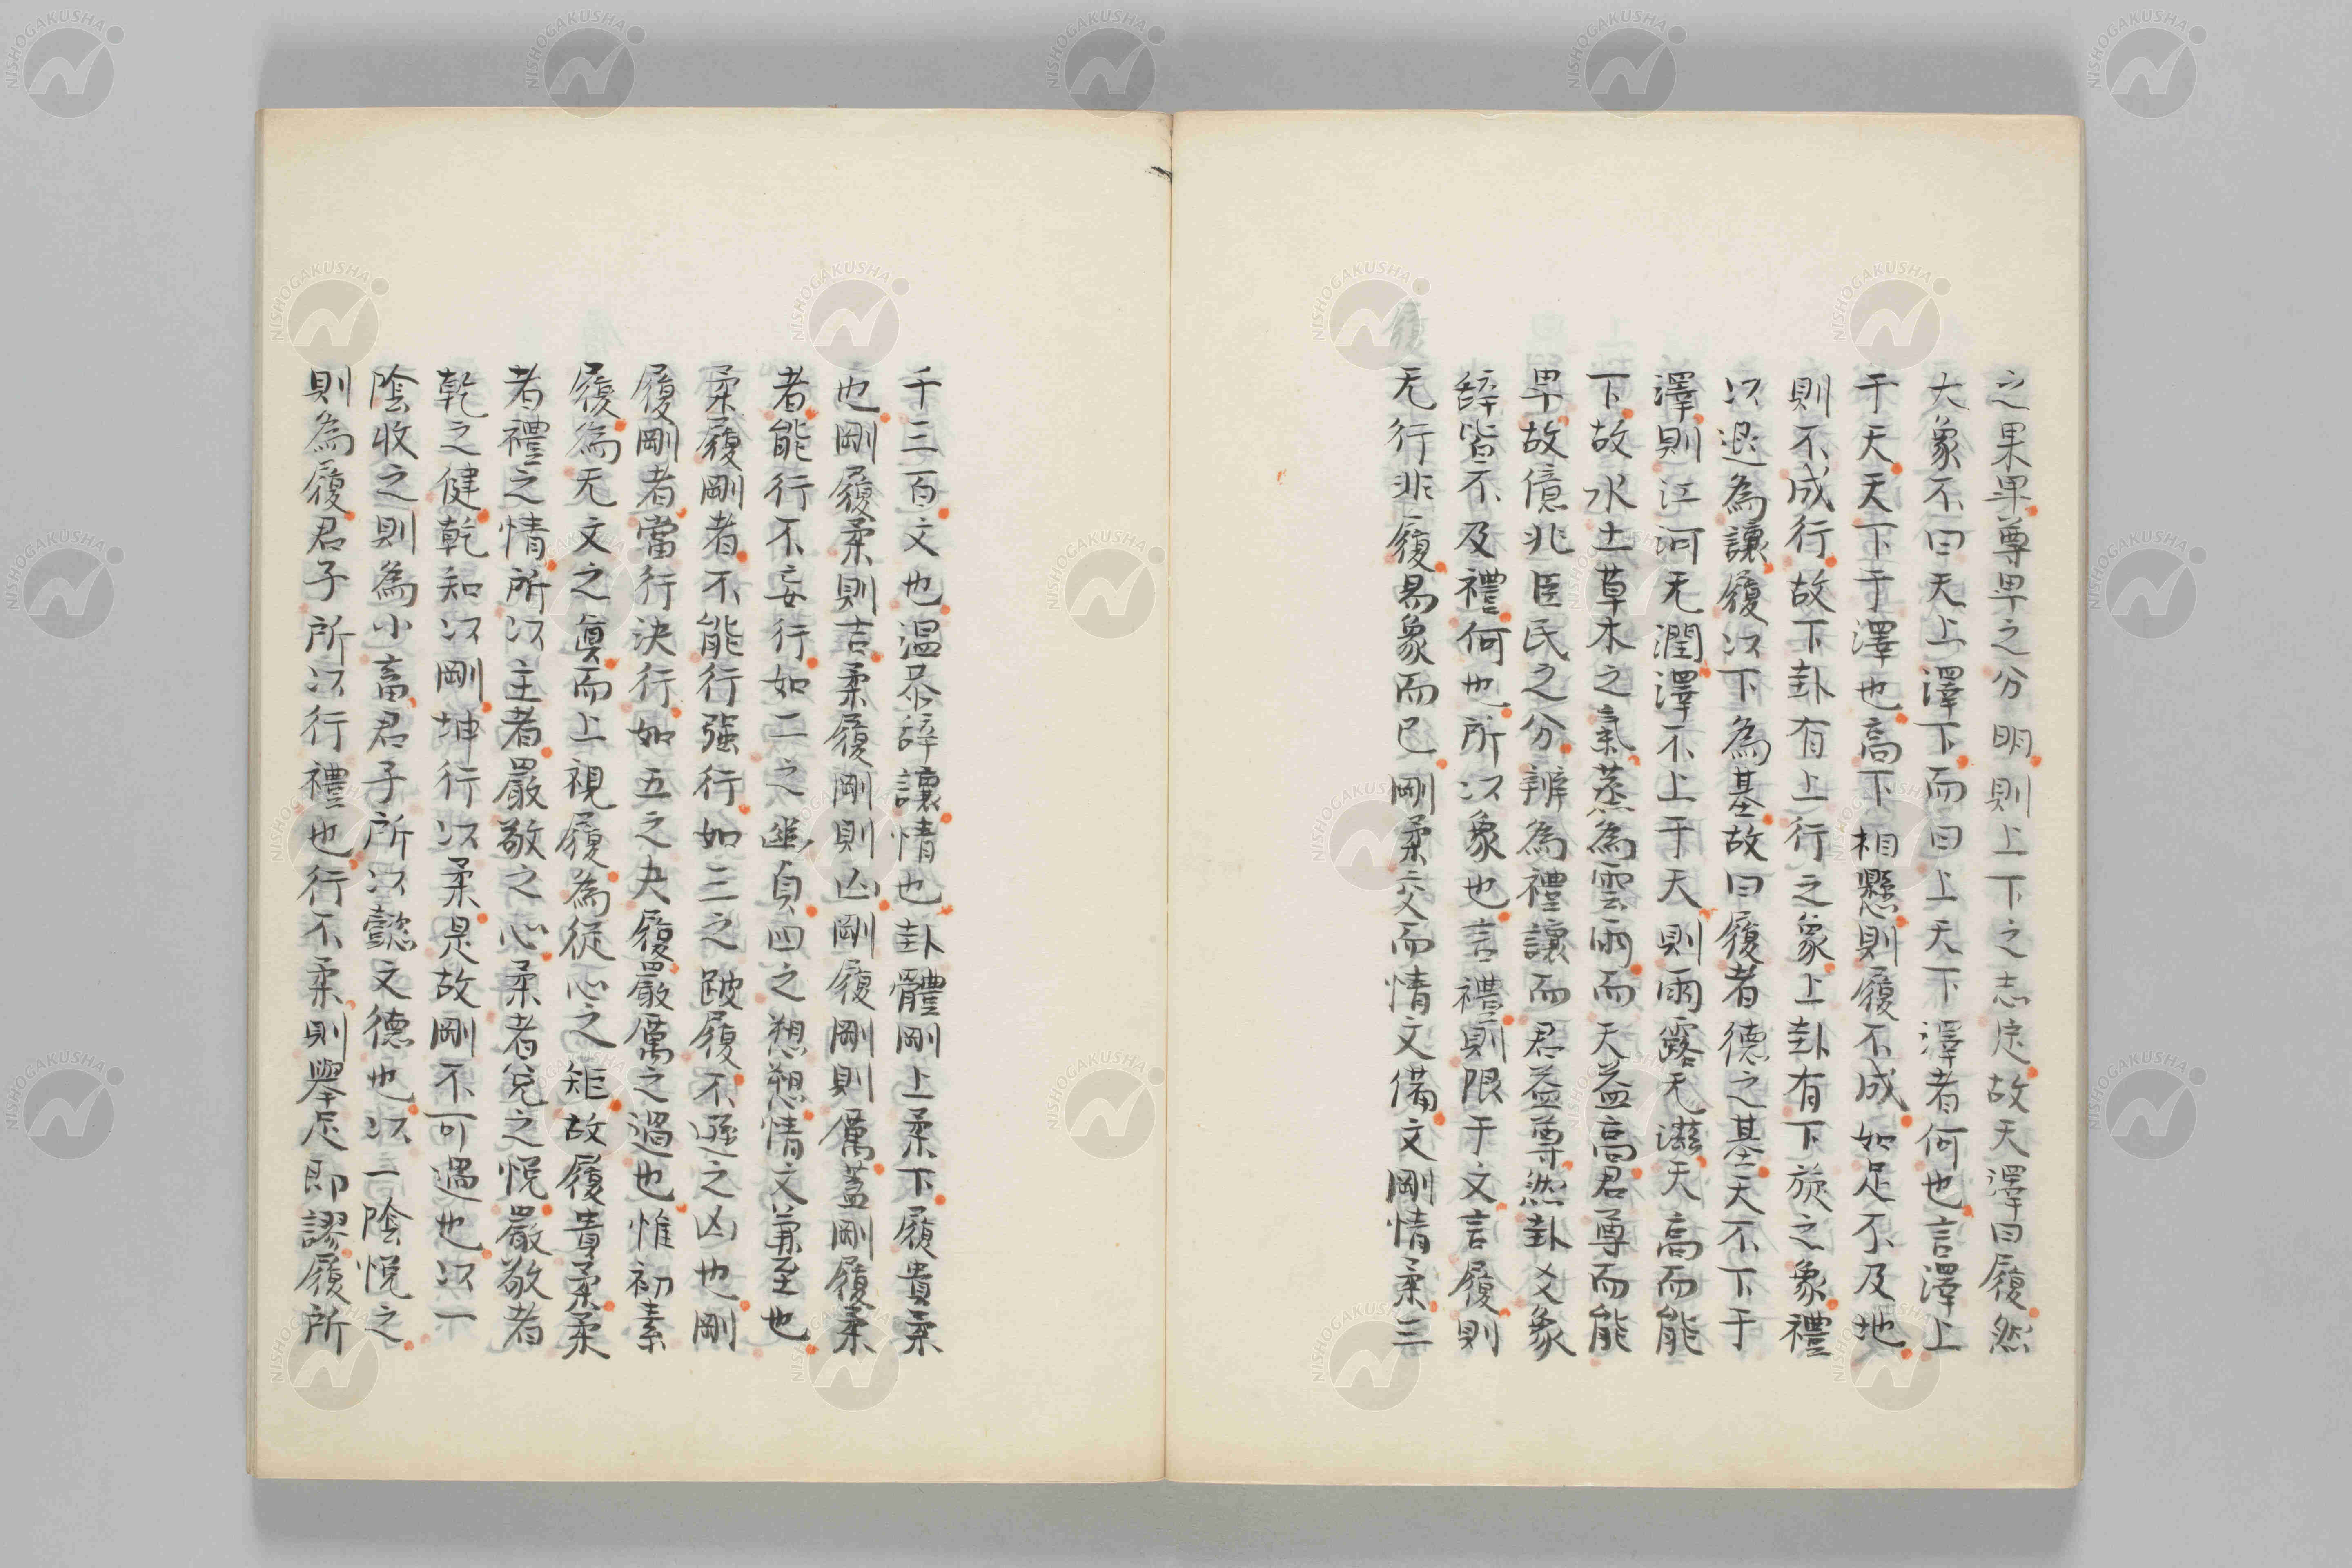 之果果尊卑之分明則上下之志定故天澤曰履然
大象不曰天上澤下而曰上天下澤者何也言澤上
于天天下于澤也高下相懸則履不成如足不及地
則不成行故下卦有上行之象上卦有下旋之象禮
以退為讓履以下為基故曰履者德之基天不下于
澤則江河无潤澤不上于天則雨露无滋天高而能
下故水土草木之氣蒸為雲雨而天益高君尊而能
卑故億兆臣民之分辨為禮讓而君益尊然卦爻象
辭皆不及禮何也所以象也言禮則限于文言履則
无行非履易象而已剛柔交而情文備文剛情柔三
千三百文也温恭辭讓情也卦體剛上柔下履貴柔
也剛履柔則吉柔履剛則凶剛履剛則厲蓋剛履柔
者能行不妄行如二之幽貞四之愬愬情文兼至也
柔履剛者不能行強行如三之跛履不遜之凶也剛
履剛者當行決行如五之夬履嚴厲之過也惟初素
履為无文之眞而上視履為從心之矩故履貴柔柔
者禮之情所以主者嚴敬之心柔者兌之悅嚴敬者
乾之健乾知以剛坤行以柔是故剛不可過也以一
陰收之則為小畜君子所以懿文德也以一陰悅之
則為履君子所以行禮也行不柔則舉足即謬履所
NISHOGAKUSHA